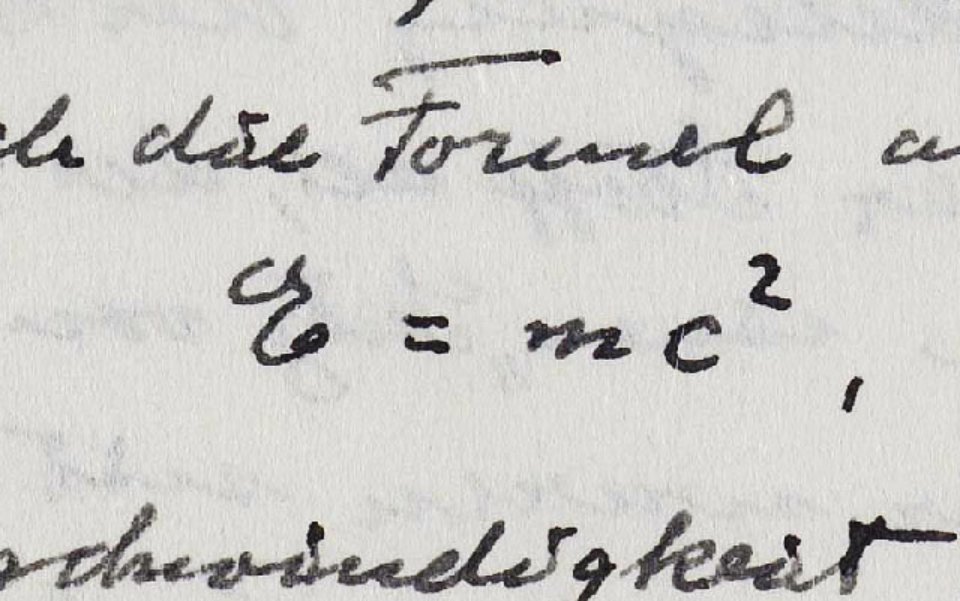 die Formel
E = mc²,
schwindigkeit